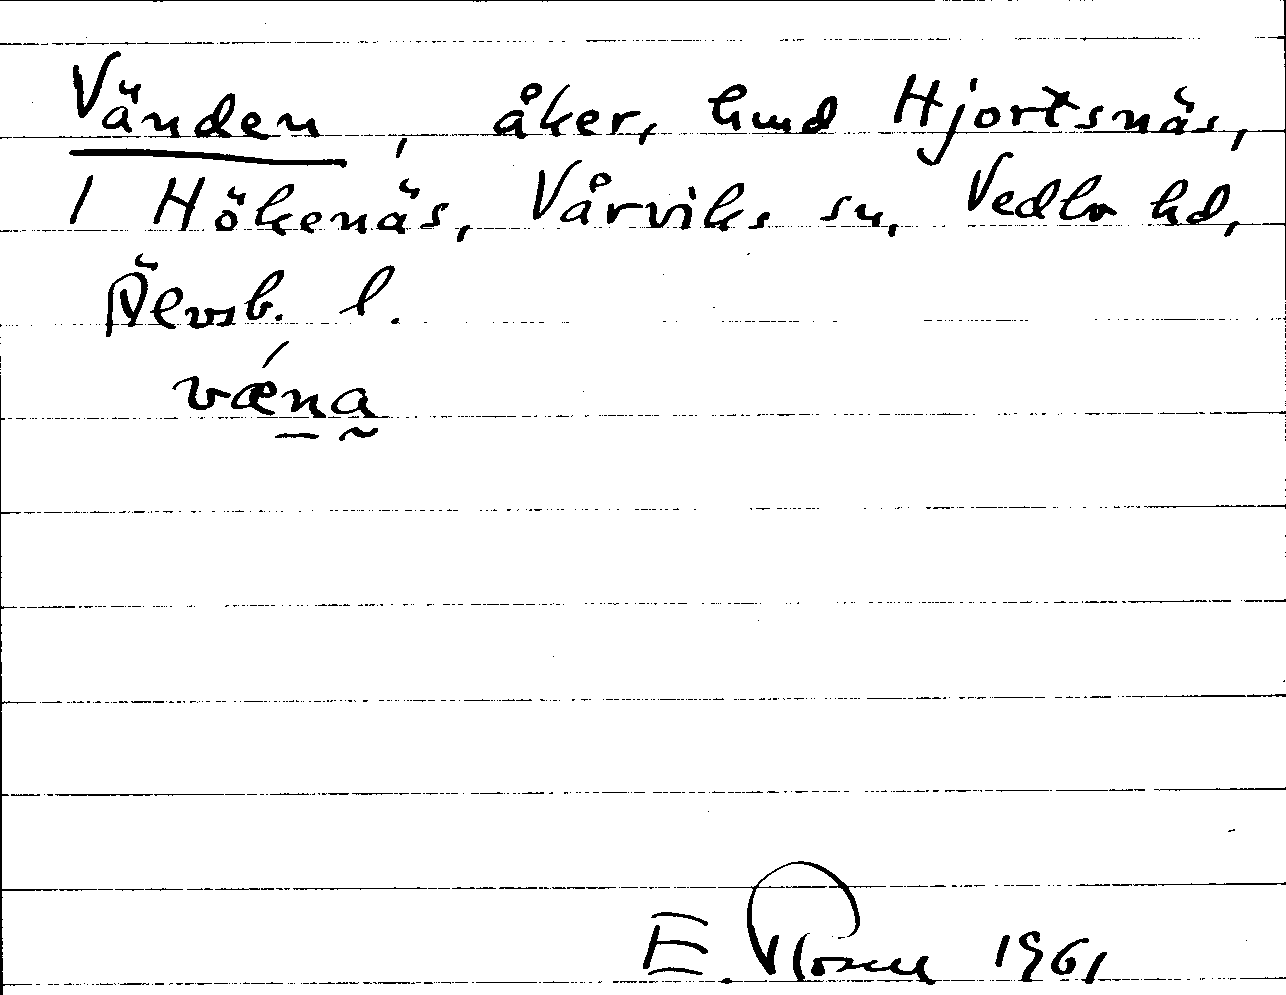 Vänden, åker, hmd Hjortsnäs,
1 Hökenäs, Vårviks sn, Vedbo hd,
Älvsb. l.
vǽna
E. Rosell 1961